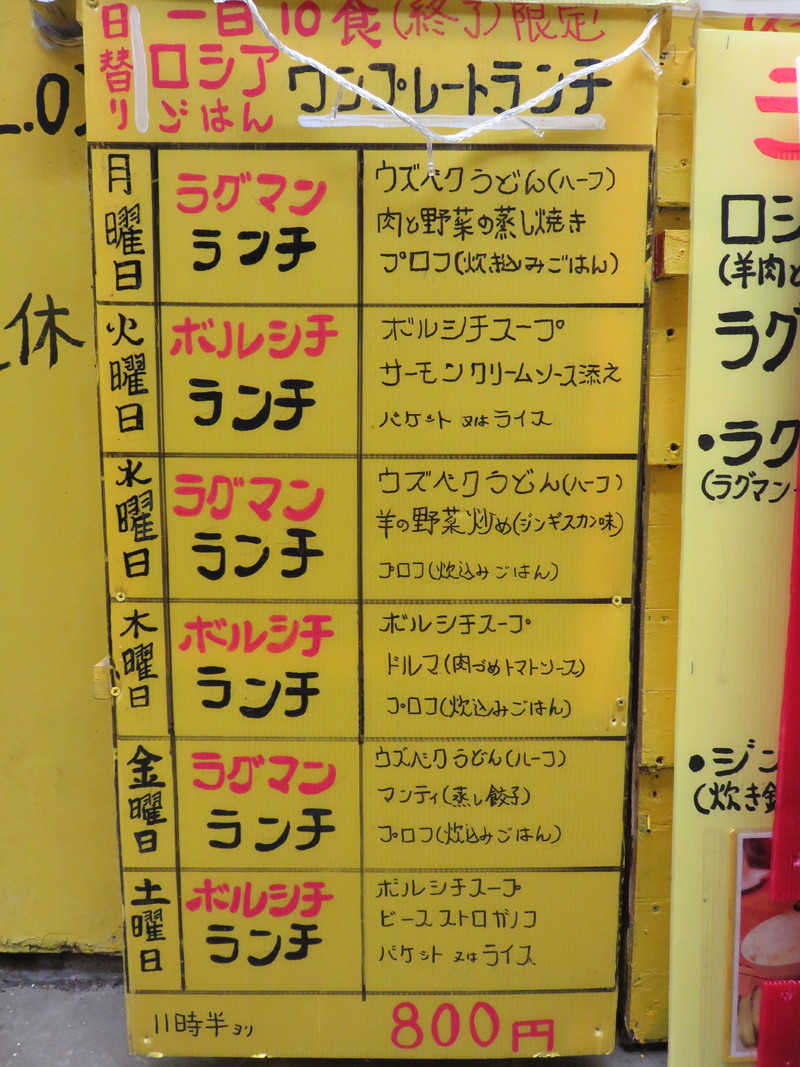 日替り
一日10食(終了)限定
ロシア
ごはん
ワンプレートランチ
月曜日
ラグマン
ランチ
ウズベクうどん(ハーフ)
肉と野菜の蒸し焼き
プロフ(炊き込みごはん)
火曜日
ボルシチ
ランチ
ボルシチスープ
サーモンクリームソース添え
バケット又はライス
水曜日
ラグマン
ランチ
ウズベクうどん(ハーフ)
羊の野菜炒め(ジンギスカン味)
プロフ(炊込みごはん)
木曜日
ボルシチ
ランチ
ボルシチスープ
ドルマ(肉づめトマトソース)
プロフ(炊込みごはん)
金曜日
ラグマン
ランチ
ウズベクうどん(ハーフ)
マンティ(蒸し餃子)
プロフ(炊込みごはん)
土曜日
ボルシチ
ランチ
ボルシチスープ
ビーフストロガノフ
バケット又はライス
11時半ヨリ
800円
L.O
休
ロシ
(羊肉と
ラグ
・ラグ
(ラグマン
・ジン
(炊き